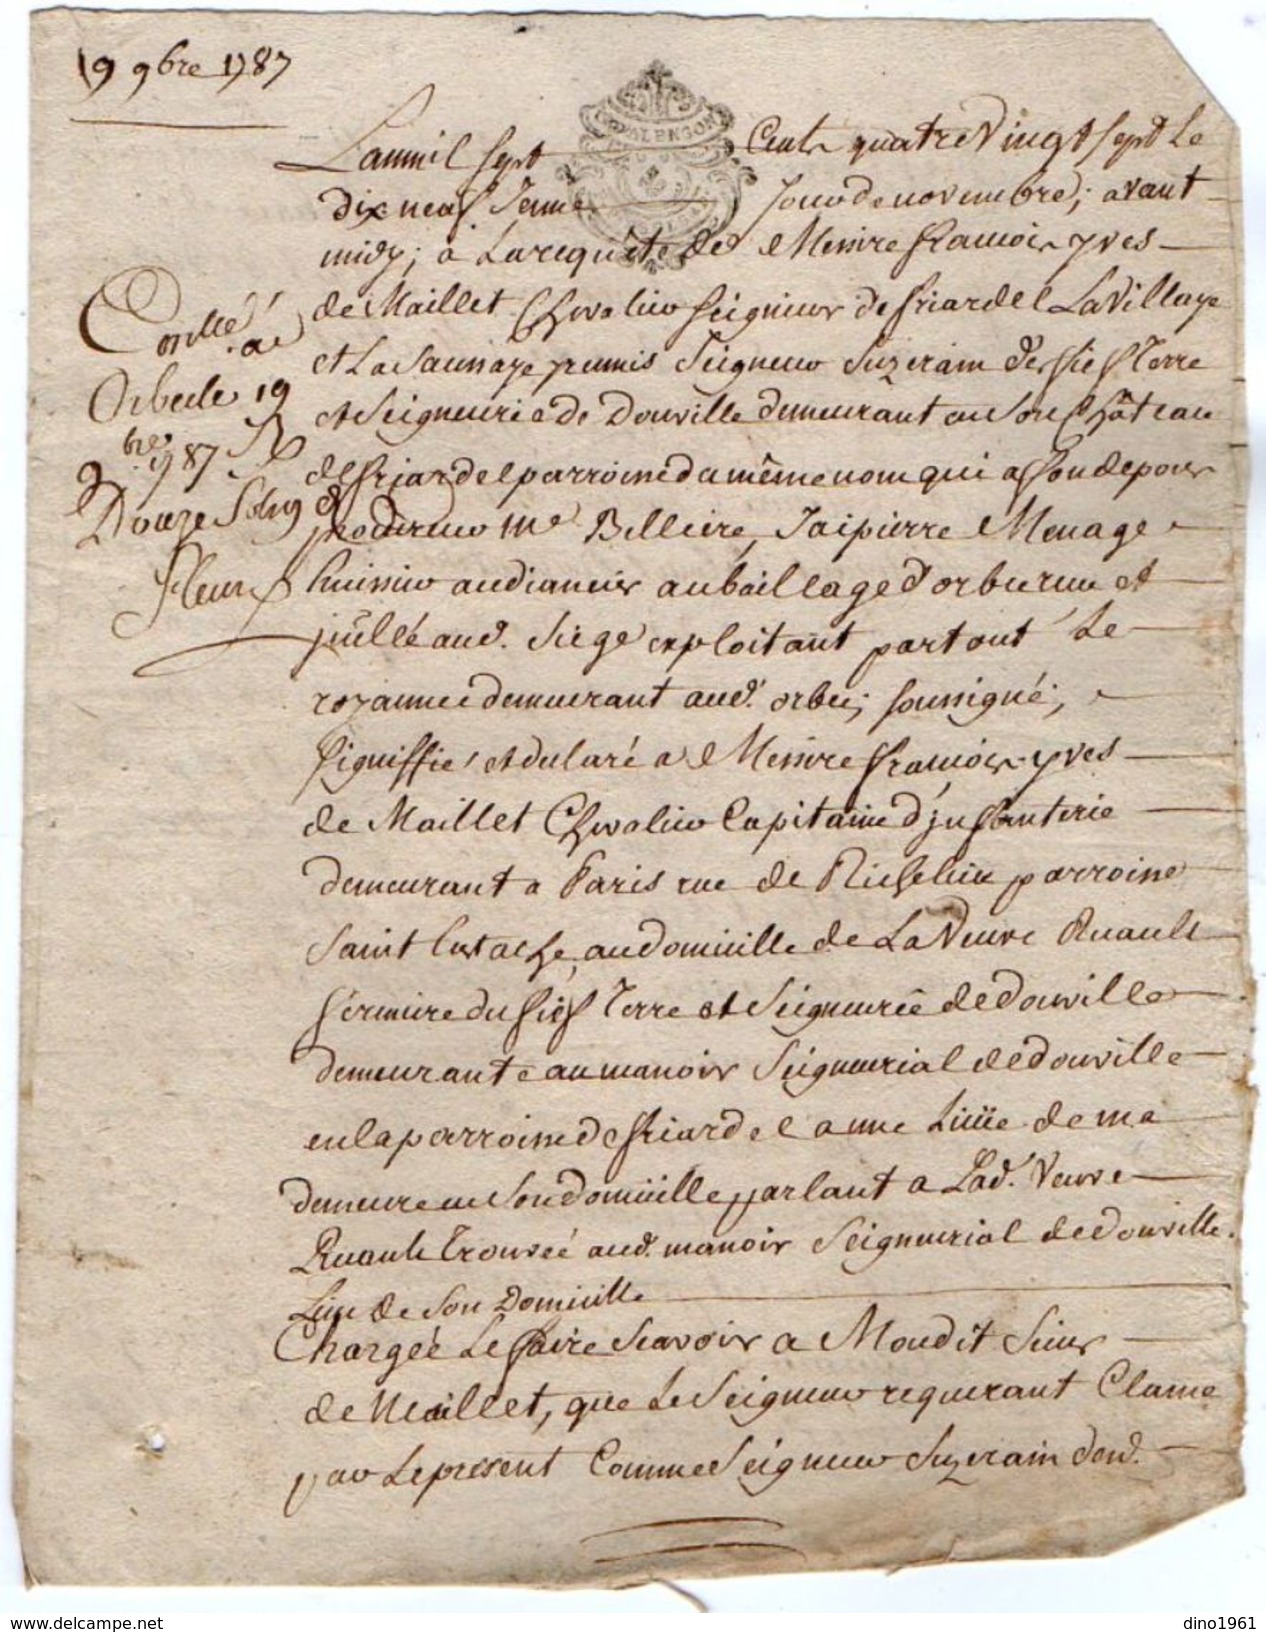 19 9bre 1787
GEN D'ALENÇON
Lanmil sept Cents quatre Vingt sept Le
dix neuf Ieme Jour de novembre; avant
midy; a La requête de Messire francois yves
de Maillet Chevalier seigneur de friardel La Village
et La Saussaye premis Seigneur Suzerain des fiefs Terre
et Seigneurie de Douville demeurant en Son Château
de friardel parroisse du même nom qui a fondé pour
procureur me Belliere, Jai pierre Menage
huissier audiancier au bailliage d'orbec reçu et
jmllé aud. Siege exploitant par tout Le
royaume demeurant aud. orbec; soussigné;
signiffié et declaré a Messire francois yves
de Maillet Chevalier Capitaine d'jnfanterie
demeurant a Paris rue de Richelieu parroisse
Saint Eustache, au domicille de La Veuve Ruault
fermiere du fief Terre et Seigneurie de Douville
demeurante au manoir Seigneurial de douville
en la parroisse de friardel a une Liüe de ma
demeure en Son domicille parlant a Lad. Veuve
Ruault trouvée aud. manoir Seigneurial de douville
Lieu de Son Domicille
Chargée Le faire Scavoir a Mondit Sieur
de Maillet, que Le Seigneur requerant Clame
par Le present Comme Seigneur Suzerain dud.
Conllé a
Orbec le 19
9bre 1787 R
Douze Sols 9 d
fleury
dino1961
www.delcampe.net